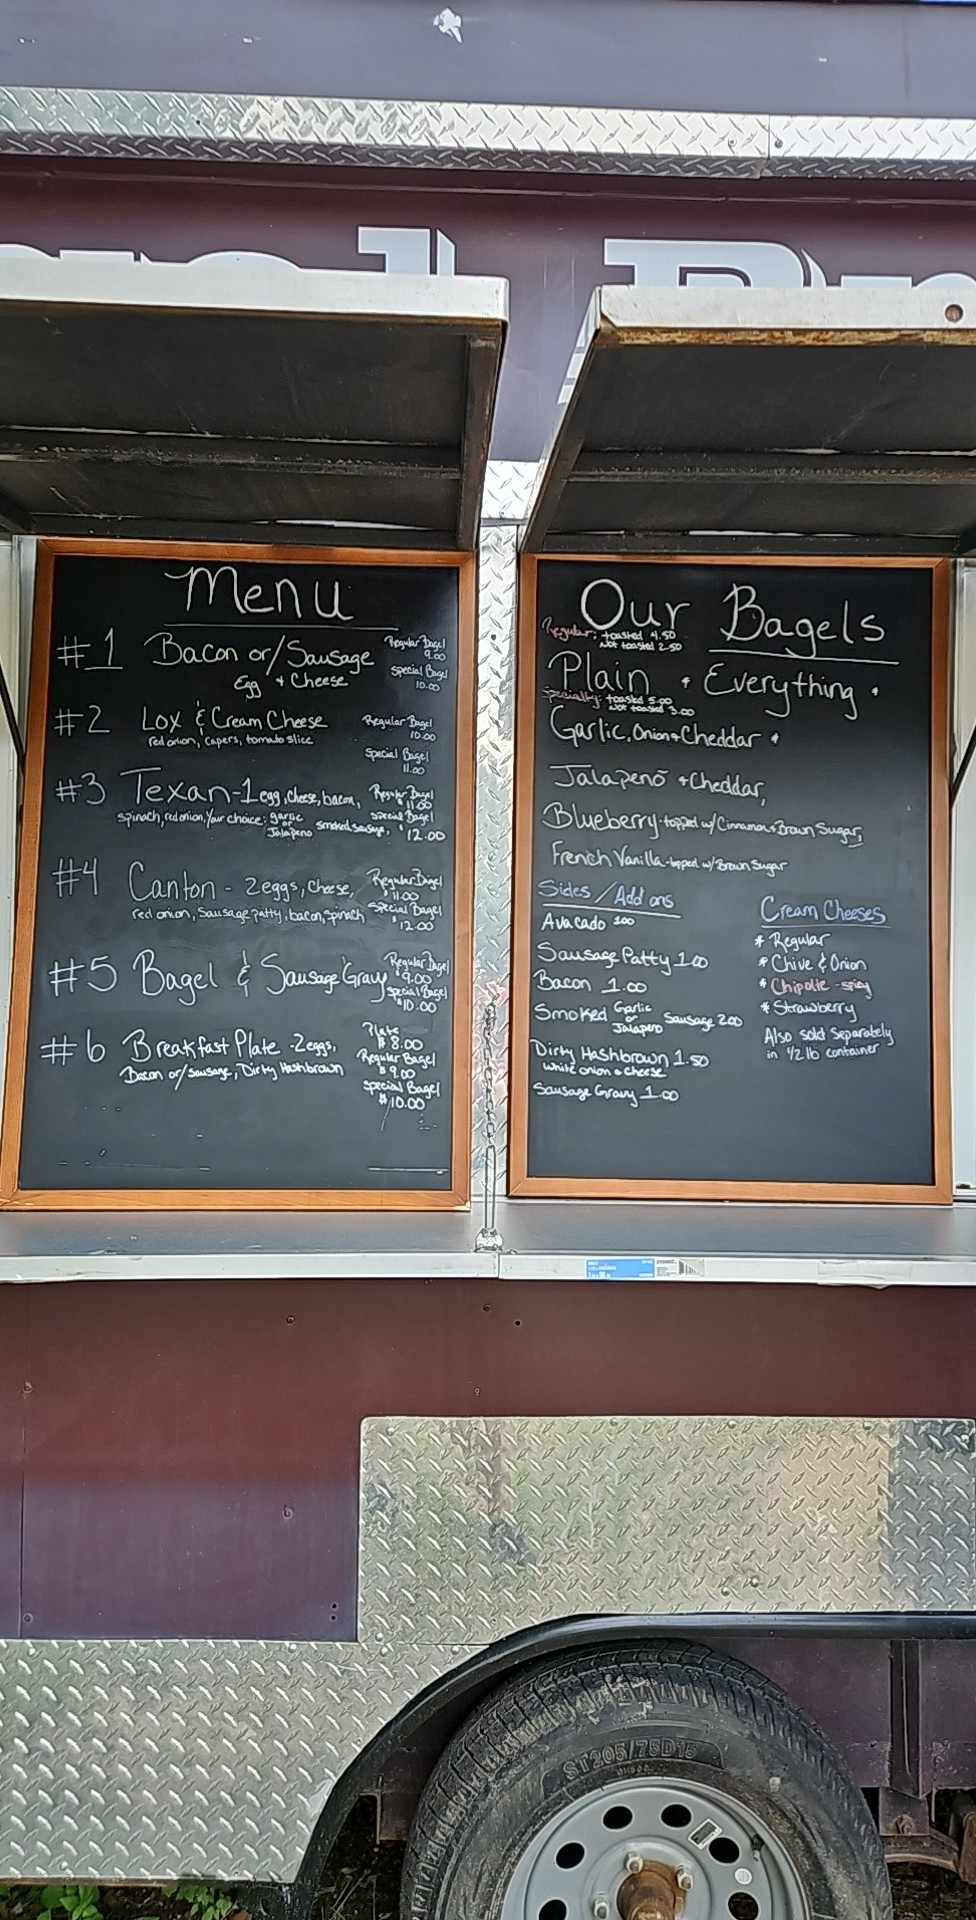 Menu
#1 Bacon or/Sausage
Egg & Cheese
Regular Bagel
9.00
Special Bagel
10.00
#2 Lox & Cream Cheese
red onion, capers, tomato slice
Regular Bagel
10.00
Special Bagel
11.00
#3 Texan - 1 egg, cheese, bacon,
spinach, red onion, Your choice: garlic or Jalapeno smoked sausage,
Regular Bagel
$11.00
Special Bagel
$12.00
#4 Canton - 2 eggs, Cheese,
red onion, Sausage patty, bacon, spinach
Regular Bagel
$11.00
Special Bagel
$12.00
#5 Bagel & Sausage Gravy
Regular Bagel
$9.00
Special Bagel
$10.00
#6 Breakfast Plate - 2 eggs,
Bacon or/Sausage, Dirty Hashbrown
Plate
$8.00
Regular Bagel
$9.00
Special Bagel
$10.00
Our Bagels
Regular: toasted 4.50
Not toasted 2.50
Plain • Everything •
Specialty: toasted 5.00
Not toasted 3.00
Garlic, Onion & Cheddar •
Jalapeno & Cheddar,
Blueberry - topped w/ Cinnamon & Brown Sugar,
French Vanilla - topped w/ Brown Sugar
Sides / Add ons
Avacado 1.00
Sausage Patty 1.00
Bacon 1.00
Smoked Garlic or Jalapeno Sausage 2.00
Dirty Hashbrown 1.50
White onion & cheese
Sausage Gravy 1.00
Cream Cheeses
* Regular
* Chive & Onion
* Chipolte - spicy
* Strawberry
Also sold separately
in 1/2 lb container
ST205/75D15